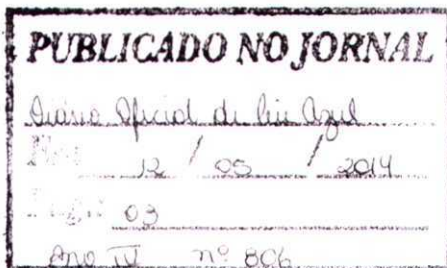 PUBLICADO NO JORNAL
Diário Oficial de Rio Azul
12 / 05 / 2014
03
Ano IV nº 806